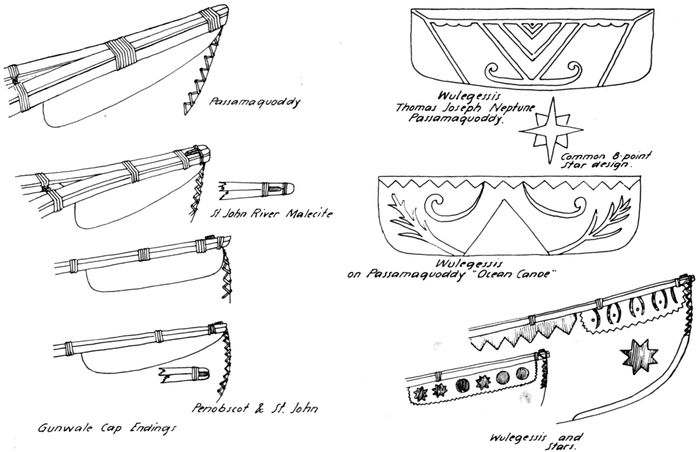 Passamaquoddy
St. John River Malecite
Penobscot & St. John
Gunwale Cap Endings
Wulegessis
Thomas Joseph Neptune
Passamaquoddy.
Common 8-point
Star design.
Wulegessis
on Passamaquoddy "Ocean Canoe"
Wulegessis and
Stars.